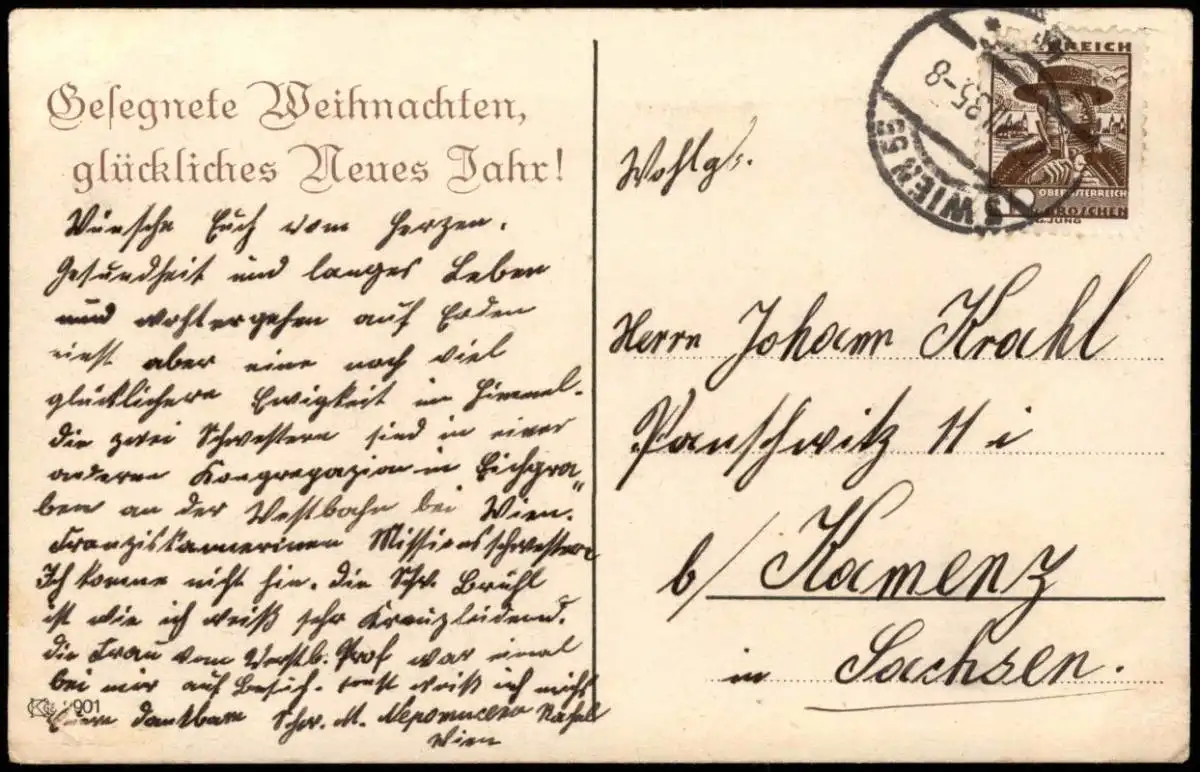 Gesegnete Weihnachten,
glückliches Neues Jahr!
Wünsche Euch vom Herzen.
Gesundheit und langes Leben
und wohlergehen auf Erden
einst aber eine noch viel
glücklichere Ewigkeit im Himmel.
Die zwei Schwestern sind in einer
anderen Kongregazion in Eichgra„
ben an der Westbahn bei Wien.
Franziskannerinen Missionsschwestern
Ich komme nicht hin. Die Schw. Brühl
ist wie ich weiß sehr Kreuzleidend.
Die Frau vom Verstb. Prof war einal
bei mir auf Besuch. sonst weiß ich nichts
Euere dankbare Schw. M. Nepomucena
Wien
901
Wohlg.
Herrn Johann Krahl
Panschwitz 11 i
b/ Kamenz
in Sachsen.
WIEN 55
XII.35-8
REICH
OBERÖSTERREICH
GROSCHEN
G.JUNG